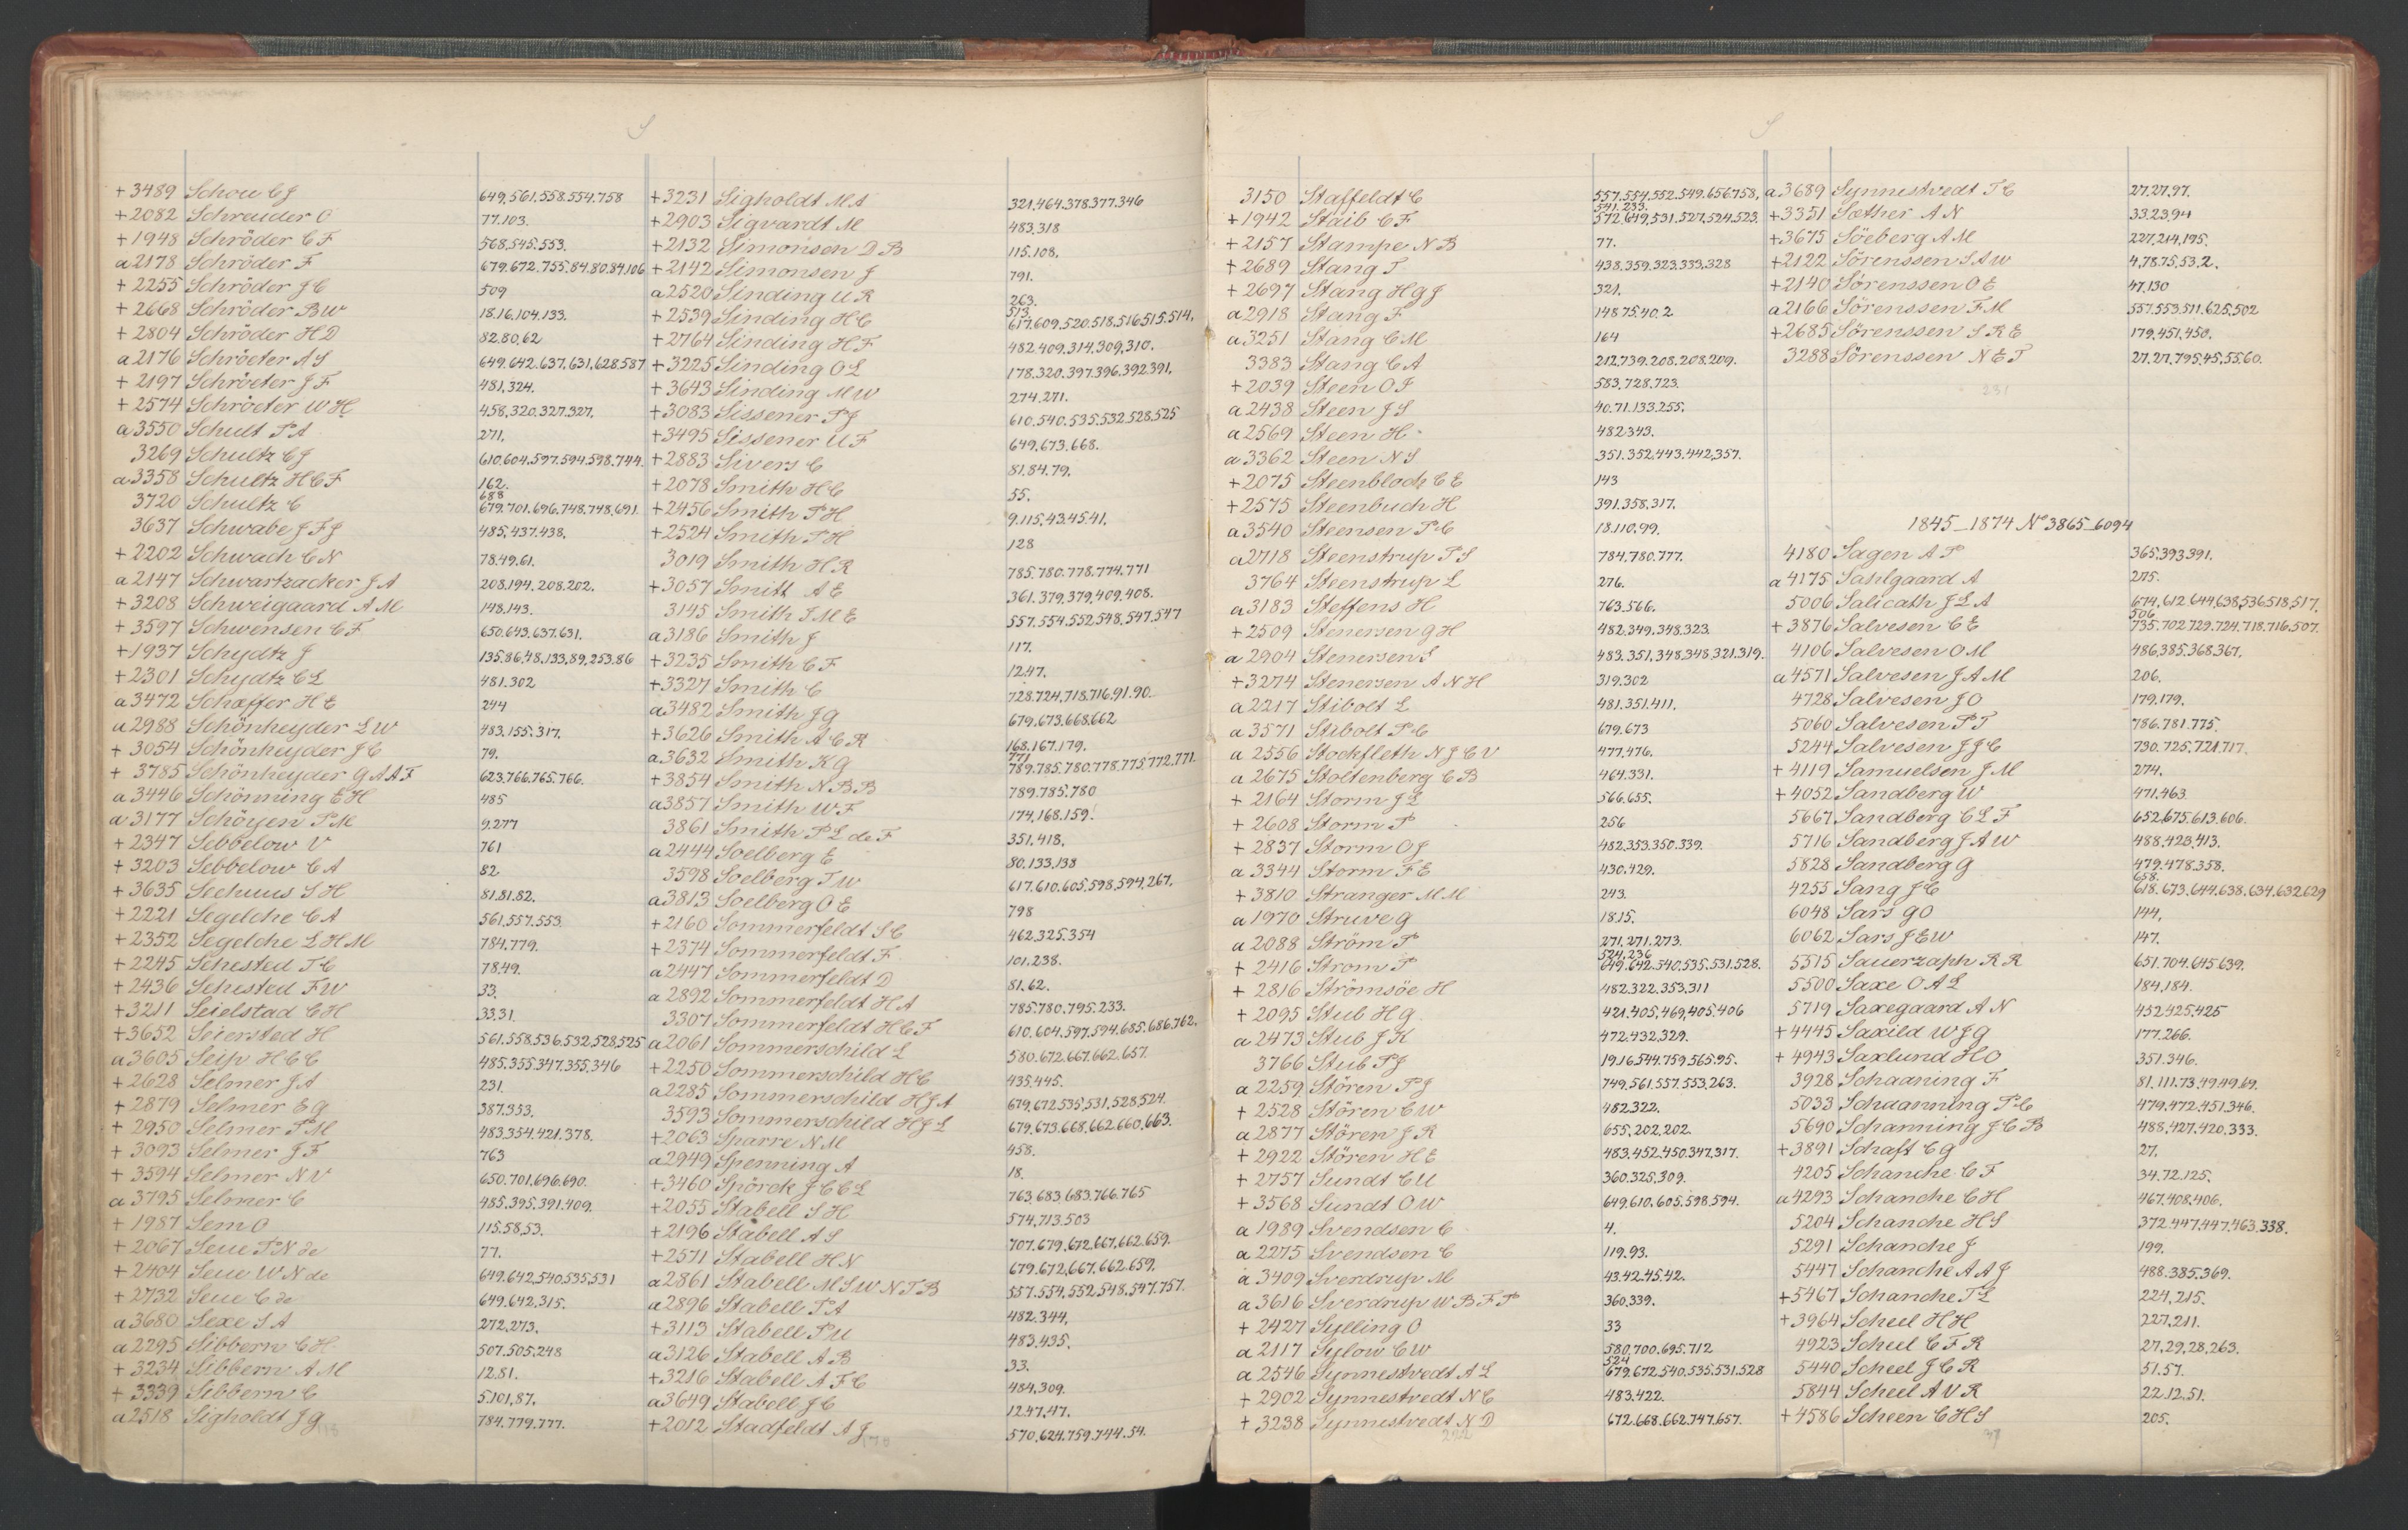 S
+ 3489 Schou C J 649,561.558.554.758
+ 2082 Schreuder O 77.103.
+ 1948 Schröder C F 568.545.553.
a 2178 Schröder F 679.672.755.84.80.84.106
+ 2255 Schröder J C 509
+ 2668 Schröder B W 18.16.104.133.
+ 2804 Schröder H D 82.80.62
a 2176 Schröeter A S 649.642.637.631.628.587
+ 2197 Schröeter J F 481.324.
+ 2574 Schröeter W H 458.320.327.327.
a 3550 Schult P A 271.
3269 Schultz C J 610.604.597.594.598.744.
a 3358 Schultz H C F 162.
3720 Schultz C 679.701.696.748.748.691. 688
3637 Schwabe J F J 485.437.438.
+ 2202 Schwach C N 78.49.61.
a 2147 Schwartzacker J A 208.194.208.202.
+ 3208 Schweigaard A M 148.143.
+ 3597 Schwensen C F 650.643.637.631.
+ 1937 Schydtz J 135.86.48.133.89.253.86
+ 2301 Schydtz C L 481.302
a 3472 Schæffer H E 244
a 2988 Schönheyder L W 483.155.317.
+ 3054 Schönheyder J C 79.
+ 3785 Schönheyder G A A F 623.766.765.766.
a 3446 Schönning E H 485
a 3177 Schöyen P M 9.277
+ 2347 Sebbelow V 761
+ 3203 Sebbelow C A 82
+ 3635 Seehuus S H 81.81.82.
+ 2221 Segelche C A 561.557.553.
+ 2352 Segelche L H M 784.779.
+ 2245 Sehested T C 78.49.
+ 2436 Sehested F W 33.
+ 3211 Seielstad C H 33.31.
+ 3652 Seiersted H 561.558.536.532.528.525
a 3605 Seip H C C 485.355.347.355.346
+ 2628 Selmer J A 231.
+ 2879 Selmer E G 387.353.
+ 2950 Selmer P M 483.354.421.378.
+ 3093 Selmer J F 763
+ 3594 Selmer N V 650.701.696.690.
a 3795 Selmer C 485.395.391.409.
+ 1987 Sem O 115.58.53.
+ 2067 Seue P N de 77.
+ 2404 Seue W N de 649.642.540.535.531
+ 2732 Seue C de 649.642.315.
a 3680 Sexe S A 272.273.
a 2295 Sibbern C H 507.505.248
+ 3234 Sibbern A M 12.81.
+ 3339 Sibbern C 5.101.87.
a 2518 Sigholdt J G 784.779.777.
+ 3231 Sigholdt M S 321.464.378.377.346
+ 2903 Sigvardt M 483.318
+ 2132 Simonsen D B 115.108.
+ 2142 Simonsen J 791.
a 2520 Sinding U R 263.
+ 2539 Sinding H C 617.609.520.518.516.515.514. 513
+ 2764 Sinding H F 482.409.314.309.310.
+ 3225 Sinding O L 178.320.397.396.392.391.
+ 3643 Sinding M W 274.271.
+ 3083 Sissener P J 610.540.535.532.528.525
+ 3495 Sissener U F 649.673.668.
+ 2883 Sivers C 81.84.79.
+ 2078 Smith H C 55.
+ 2456 Smith P H 9.115.43.45.41.
+ 2524 Smith P H 128
3019 Smith H R 785.780.778.774.771
+ 3057 Smitt A E 361.379.379.409.408.
3145 Smith S M E 557.554.552.548.547.547
a 3186 Smith J 117.
+ 3235 Smith C F 12.47.
+ 3327 Smith C 728.724.718.716.91.90.
a 3482 Smith J G 679.673.668.662
+ 3626 Smith A C R 168.167.179.
a 3632 Smith K G 789.785.780.778.775.772.771. 771
+ 3854 Smith N B B 789.785.780
a 3857 Smith W F 174.168.159.
3861 Smith P L de F 351.418.
a 2444 Soelberg E 80.133.138
3598 Soelberg T W 617.610.605.598.594.267.
a 3813 Soelberg O E 798
+ 2160 Sommerfeldt S C 462.325.354
+ 2374 Sommerfeldt F 101.238.
a 2447 Sommerfeldt D 81.62.
a 2892 Sommerfeldt H A 785.780.795.233.
3307 Sommerfeldt H C F 610.604.597.594.685.686.762.
a 2061 Sommerschild L 580.672.667.662.657.
+ 2250 Sommerschild H C 435.445.
a 2285 Sommerschild H J A 679.672.535.531.528.524.
3593 Sommerschild H J L 679.673.668.662.660.663.
+ 2063 Sparre N M 458.
a 2949 Spenning A 18.
+ 3460 Spörck J C C L 763.683.683.766.765
+ 2055 Stabell S H 574.713.503
+ 2196 Stabell A S 707.679.672.667.662.659.
+ 2571 Stabell H N 679.672.667.662.659.
a 2861 Stabell M S W N T B 557.554.552.548.547.757.
a 2896 Stabell P A 482.344.
+ 3113 Stabell P U 483.435.
a 3126 Stabell A B 33.
+ 3216 Stabell A F C 484.309.
a 3649 Stabell J C 12.47.47.
+ 2012 Stadfeldt A J 570.624.759.744.54.
S
3150 Staffeldt C 557.554.552.549.656.758. 541.233.
+ 1942 Staib C F 572.649.531.527.524.523.
+ 2157 Stampe N B 77.
+ 2689 Stang T 438.359.323.333.328
+ 2697 Stang H G J 321.
a 2918 Stang F 148.75.40.2
a 3251 Stang C M 164
3383 Stang C A 212.739.208.208.209.
+ 2039 Steen O J 583.728.723.
a 2438 Steen J S 40.71.133.255.
a 2569 Steen H 482.343.
a 3362 Steen N S 351.352.443.442.357.
+ 2075 Steenbloch C E 143
+ 2575 Steenbuch H 391.358.317.
a 3540 Steensen P C 18.110.99.
a 2718 Steenstrup P S 784.780.777.
3764 Steenstrup L 276.
a 3183 Steffens H 763.566.
+ 2509 Stenersen G H 482.349.348.323.
a 2904 Stenersen S 483.351.348.348.321.319.
+ 3274 Stenersen A N H 319.302
a 2217 Stibolt L 481.351.411.
a 3571 Stibolt P C 679.673
a 2556 Stockfleth N J C V 477.476.
a 2675 Stoltenberg C B 464.331.
+ 2164 Storm J L 566.655.
+ 2608 Storm P 256
+ 2837 Storm O J 482.353.350.339.
a 3344 Storm F E 430.429.
+ 3810 Stranger M M 243.
a 1970 Struve G 18.15.
a 2088 Ström P 271.271.273.
+ 2416 Strom P 649.642.540.535.531.528. 524.236
+ 2816 Strömsöe H 482.322.353.311
+ 2095 Stub H G 421.405.469.405.406
a 2473 Stub J K 472.432.329.
3766 Stub P J 19.16.544.759.565.95.
a 2259 Stören P J 749.561.557.553.263.
+ 2528 Stören C W 482.322.
a 2877 Stören J R 655.202.202.
+ 2922 Stören H E 483.452.450.347.317.
+ 2757 Sundt C U 360.325.309.
+ 3568 Sundt O W 649.610.605.598.594.
a 1989 Svendsen C 4.
a 2275 Svendsen C 119.93.
a 3409 Sverdrup M 43.42.45.42.
a 3616 Sverdrup W B F P 360.339.
+ 2427 Sylling O 33
a 2117 Sylow C W 580.700.695.712
a 2546 Synnestvedt A L 679.672.540.535.531.528 524
+ 2902 Synnestvedt N C 483.422.
+ 3238 Synnestvedt N D 672.668.662.747.657.
a 3689 Synnestvedt T C 27.27.97.
+ 3351 Sæther A N 33.23.94
+ 3675 Söeberg A M 227.214.195.
+ 2122 Sörenssen S A W 4.78.75.53.2.
+ 2140 Sörenssen O E 47.130
a 2166 Sörenssen F M 557.553.511.625.502
+ 2685 Sörenssen S R E 179.451.450.
3288 Sörenssen N E T 27.27.795.45.55.60.
231
1845_1874 No 3865_6094
4180 Sagen A P 365.393.391.
a 4175 Sahlgaard A 275.
5006 Salicath J L A 674.612.644.638.536.518.517. 506
+ 3876 Salvesen C E 735.702.729.724.718.716.507.
4106 Salvesen O M 486.385.368.367.
a 4571 Salvesen J A M 206.
4728 Salvesen J O 179.179.
5060 Salvesen P T 786.781.775.
5244 Salvesen J J C 730.725.721.717.
+ 4119 Samuelsen J M 274.
+ 4052 Sandberg W 471.463
5667 Sandberg C L F 652.675.613.606.
5716 Sandberg J A W 488.423.413.
5828 Sandberg G 479.478.358.
4255 Sang J C 618.673.644.638.634.632.629 658.
6048 Sars G O 144.
6062 Sars J E W 147.
5515 Sauerzaph R R 651.704.645.639.
5500 Saxe O A L 184.184.
5719 Saxegaard A N 452.425.425
+ 4445 Saxild W J G 177.266.
+ 4943 Saxlund H O 351.346.
3928 Schaaning F 81.111.73.49.49.69.
5033 Schaanning P C 479.472.451.346.
5690 Schanning J C B 488.427.420.333.
+ 3891 Schaft C G 27.
4205 Schanche C F 34.72.125.
a 4293 Schanche C H 467.408.406.
5204 Schanche H S 372.447.447.463.338.
5291 Schanche J 199.
5447 Schanche A A J 488.385.369.
+ 5467 Schanche T L 224.215.
+ 3964 Scheel H H 227.211.
4923 Scheel C F R 27.29.28.263.
5440 Scheel J C R 51.57.
5844 Scheel A V R 22.12.51.
+ 4586 Scheen C H S 205.